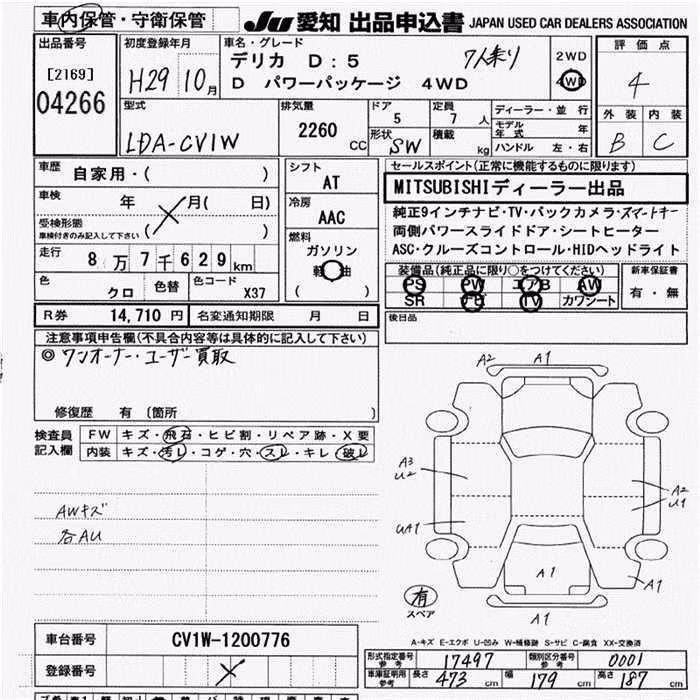 車内保管・守衛保管
JU 愛知 出品申込書 JAPAN USED CAR DEALERS ASSOCIATION
出品番号
[2169]
04266
初度登録年月
H29 10月
車名・グレード
デリカ D:5 7人乗り
D パワーパッケージ 4WD
2WD
4WD
評価点
4
外装 内装
B C
型式
LDA-CV1W
排気量
2260 CC
ドア
5
形状
SW
定員
7 人
積載
kg
ディーラー・並行
モデル年式 年
ハンドル 左・右
車歴
自家用・( )
車検 年 月( 日)
受検形態
車検付きのみ記入して下さい ( )
走行 8万7千629km
色 クロ 色替 色コード X37
シフト
AT
冷房
AAC
燃料
ガソリン
軽油
( )
セールスポイント(正常に機能するものに限ります)
MITSUBISHIディーラー出品
純正9インチナビ・TV・バックカメラ・スマートキー
両側パワースライドドア・シートヒーター
ASC・クルーズコントロール・HIDヘッドライト
装備品(純正品に限り○をつけてください)
PS PW エアB AW
SR ナビ TV カワシート
新車保証書
有・無
R券 14,710 円 名変通知期限 月 日
後日品
注意事項申告欄(不具合内容等は具体的に記入して下さい)
◎ワンオーナー・ユーザー買取
修復歴 有 〔箇所 〕
検査員記入欄
FW キズ・飛石・ヒビ割・リペア跡・X要
内装 キズ・汚レ・コゲ・穴・スレ・キレ・破レ
AWキズ
各AU
A2 A1
A3
U2
A2
U1
UA1
A1
A1
有
スペア
A1
A-キズ E-エクボ U-凹み W-補修跡 S-サビ C-腐食 XX-交換済
車台番号 CV1W-1200776
登録番号
形式指定番号 参考 17497 類別区分番号 参考 0001
車庫証明用 参考 長さ 473 cm 幅 179 cm 高さ 187 cm